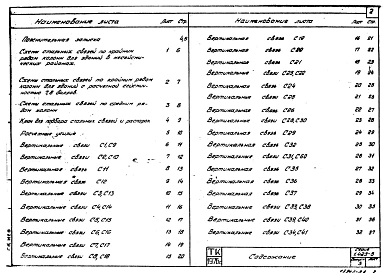 2
Наименование листа Лист Стр.
Пояснительная записка 4,5
Схемы стальных связей по крайним 1 6
рядам колонн для зданий в несейсми-
ческих районах.
Схемы стальных связей по крайним рядам 2 7
колонн для зданий с расчетной сейсмич-
ностью 7,8 баллов
Схемы стальных связей по средним ря- 3 8
дам колонн
Ключ для подбора стальных связей и распорок 4 9
Расчетные усилия 5 10
Вертикальные связи С1, С9 6 11
Вертикальные связи С2, С10 7 12
Вертикальные связи С11 8 13
Вертикальные связи С12 9 14
Вертикальные связи С3, С13 10 15
Вертикальные связи С4, С14 11 16
Вертикальные связи С5, С15 12 17
Вертикальные связи С6, С16 13 18
Вертикальные связи С7, С17 14 19
Вертикальные связи С8, С18 15 20
Наименование листа Лист Стр.
Вертикальные связи С19 16 21
Вертикальные связи С20 17 22
Вертикальные связи С21 18 23
Вертикальные связи С22, С23 19 24
Вертикальные связи С24 20 25
Вертикальные связи С25 21 26
Вертикальные связи С26 22 27
Вертикальные связи 23 28
Вертикальные связи С29 24 29
Вертикальные связи С32 25 30
Вертикальные связи 26 31
Вертикальные связи С35 27 32
Вертикальные связи С36 28 33
Вертикальные связи С37 29 34
Вертикальные связи С33, С38 30 35
Вертикальные связи С39, С40 31 36
Вертикальные связи С34, С41 32 37
ТК
1970г.
Содержание
Серия
Лист